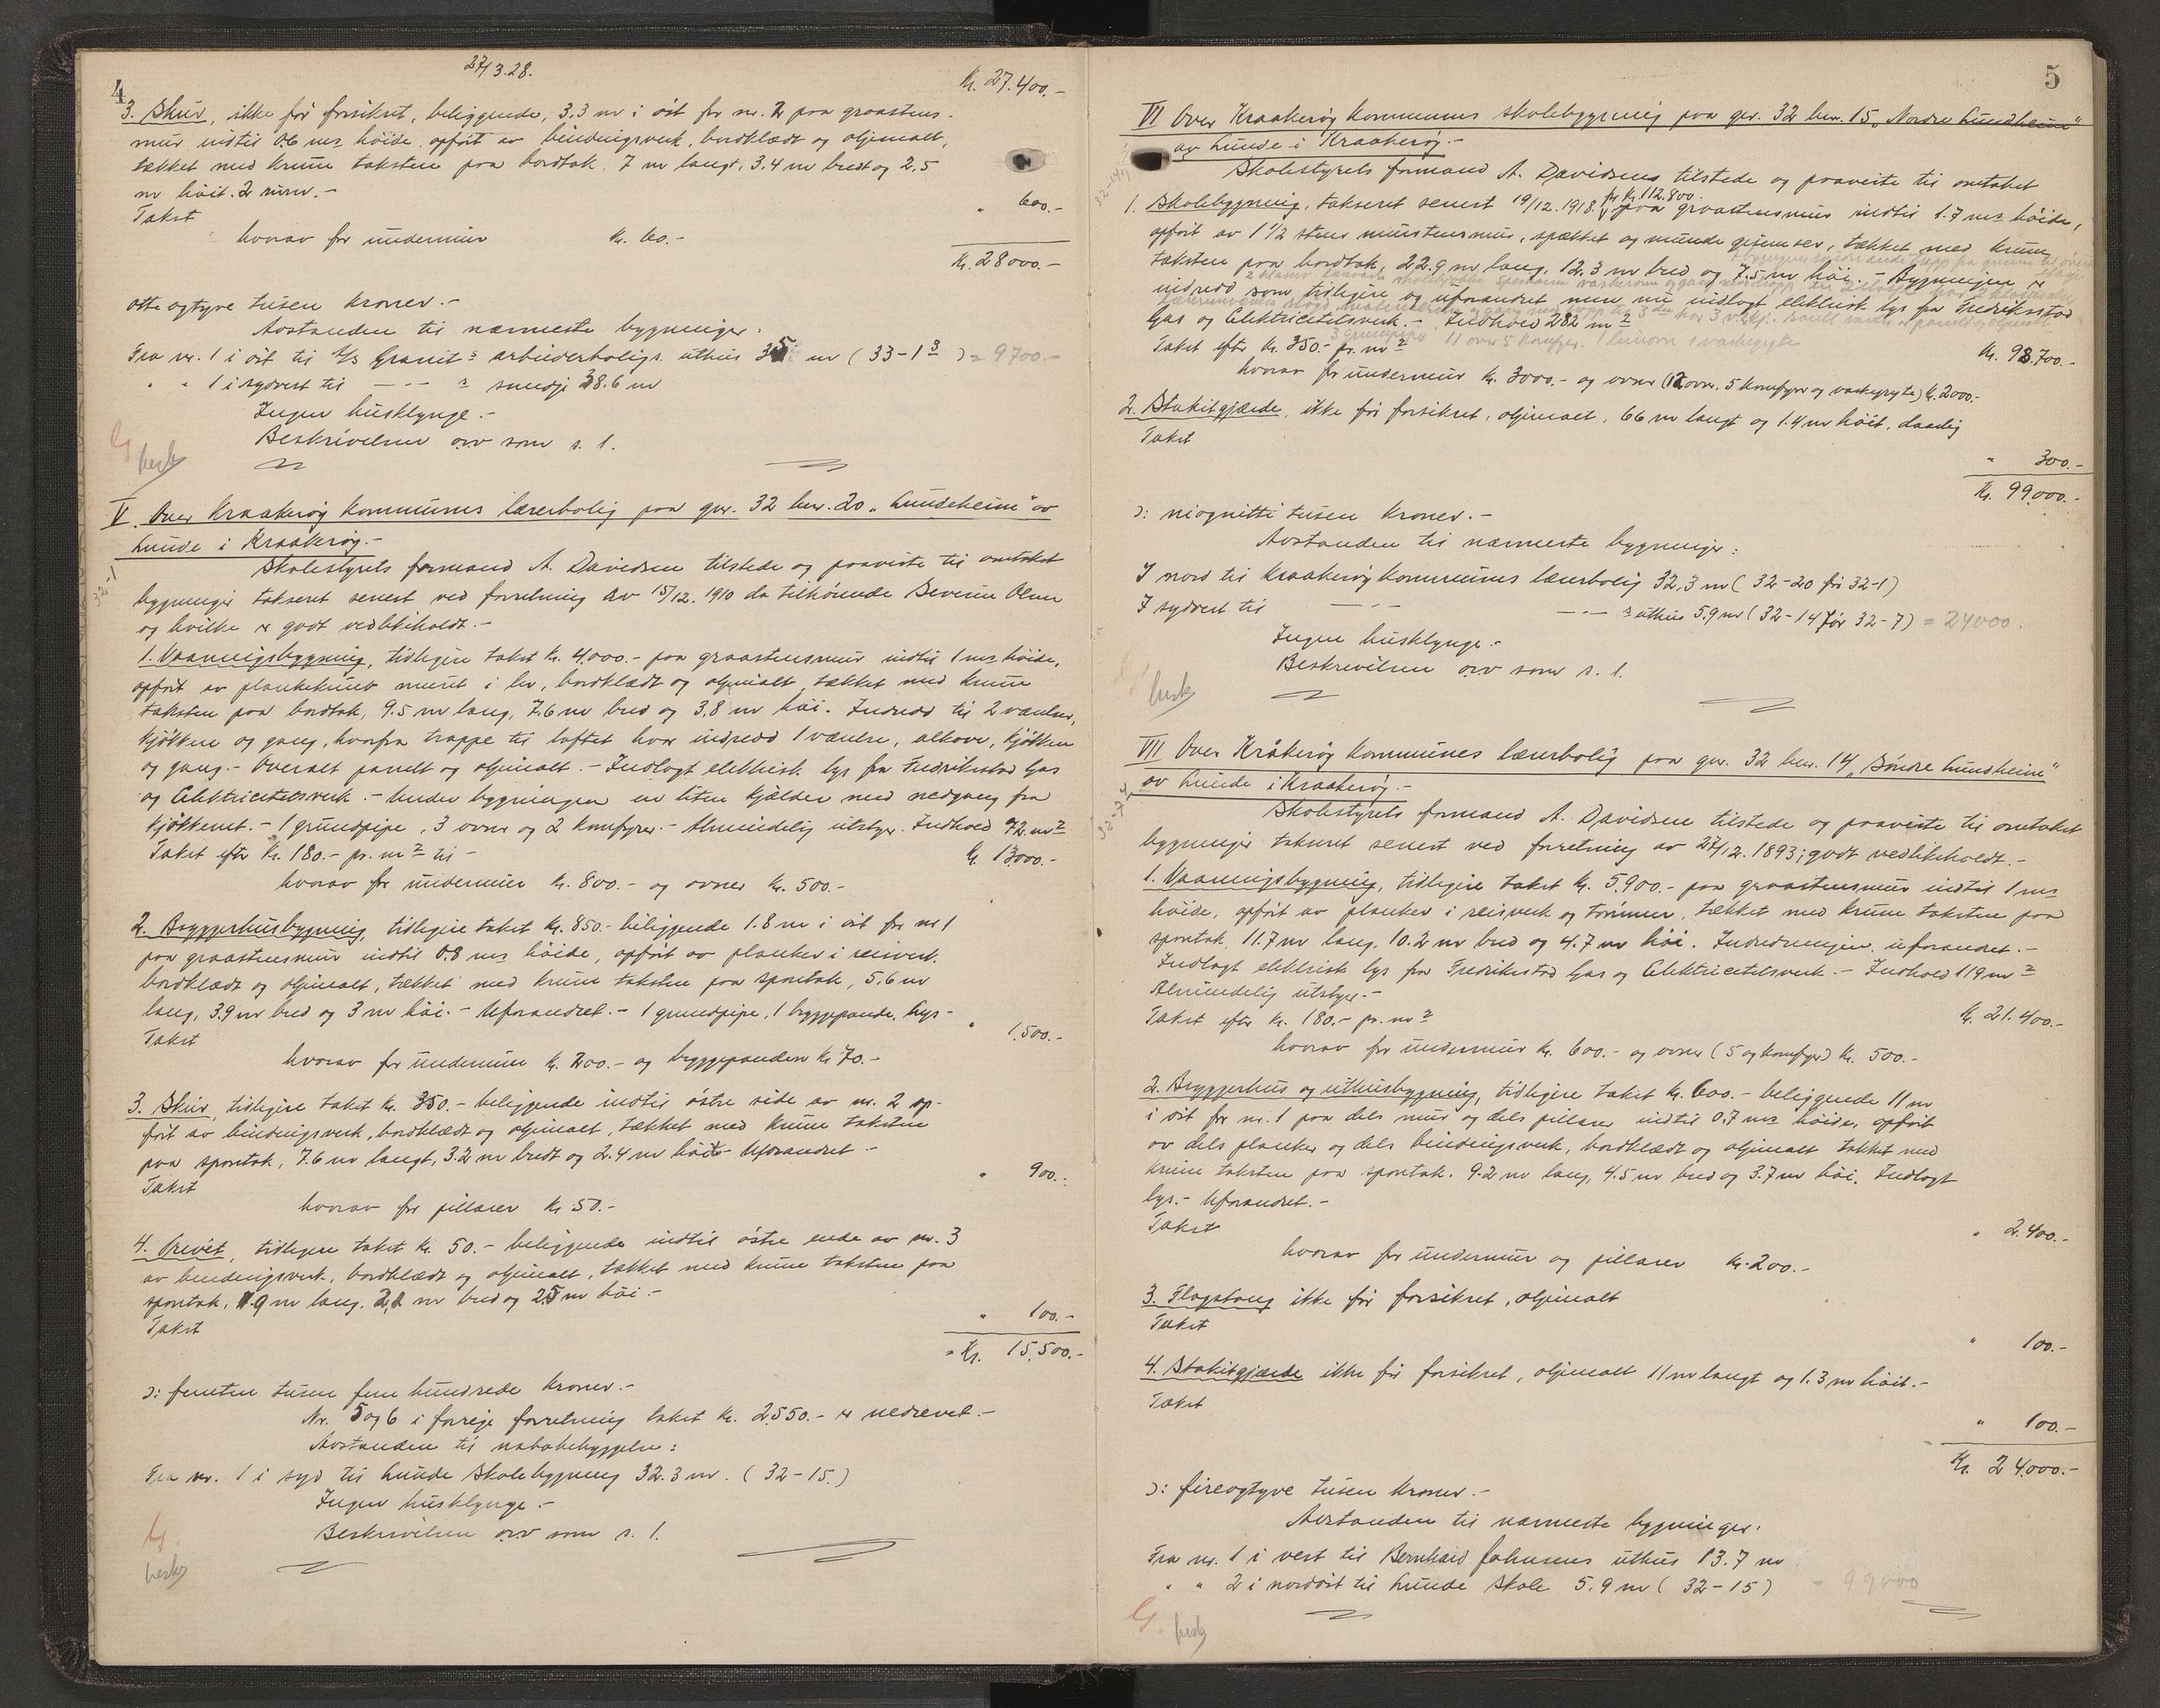 4
27/3.28.
Kr. 27.400.-
3. Skur, ikke før forsikret, beliggende, 3.3 m i øst for nr. 2 paa graastens-
mur indtil 0.6 ms høide, opført av bindingsverk, bordklædt og oljemalt,
tækket med krum taksten paa bordtak, 7 m langt, 3.4 m bredt og 2,5
m høit. 2 rum.-
Takst " 600.-
hvorav for undermur Kr. 60.-
Kr. 28000.-
otte og tyve tusen kroner.-
Avstanden til nærmeste bygninger:
Fra nr. 1 i øst til A/S Granit's arbeiderboligs uthus 35 m (33-1³) = 9700.-
" " 1 i sydvest til — " — s smedje 38.6 m
Ingen husklynge.-
Beskrivelsen o.s.v som s. 1.
besk
V. Over Kraakerøy kommunes lærerbolig paa gnr. 32 bnr. 20 „Lundeheim" av
Lunde i Kraakerøy.-
32-1
Skolestyrets formand A. Davidsen tilstede og paaviste til omtakst
bygninger takseret senest ved forretning av 15/12. 1910 da tilhørende Severin Olsen
og hvilke er godt vedlikeholdt.-
1. Vaaningsbygning, tidligere takst Kr. 4,000.- paa graastensmur indtil 1 ms høide,
opført av plankekubb muret i ler, bordklædt og oljemalt, tækket med krum
taksten paa bordtak, 9.5 m lang, 7.6 m bred og 3,8 m høi. Indredd til 2 værelser,
kjøkken og gang, hvorfra trappe til loftet hvor indredd 1 værelse, alkove, kjøkken
og gang.- Overalt panelt og oljemalt.- Indlagt elektrisk lys fra Fredrikstad Gas
og Elektricitetsverk.- Under bygningen en liten kjælder med nedgang fra
kjøkkenet.- 1 grundpipe, 3 ovner og 2 komfyrer.- Almindelig utstyr. Indhold 72 m²
Takst efter Kr. 180.- pr. m² til - Kr. 13000.-
hvorav for undermur Kr. 800.- og ovner Kr. 500.-
2. Bryggerhusbygning, tidligere takst Kr. 850.- beliggende 1.8 m i øst for nr 1
paa graastensmur indtil 0.8 ms høide, opført av planker i reisverk,
bordklædt og oljemalt, tækket med krum taksten paa spontak, 5.6 m
lang, 3.9 m bred og 3 m høi.- Uforandret.- 1 grundpipe, 1 bryggepande, lys-
Takst " 1.500.-
hvorav for undermur Kr. 200.- og bryggepanden Kr 70.-
3. Skur, tidligere takst Kr. 350.- beliggende indtil østre side av nr. 2 op-
ført av bindingsverk, bordklædt og oljemalt, tækket med krum taksten
paa spontak, 7.6 m langt, 3.2 m bredt og 2.4 m høit- Uforandret -
Takst " 900.-
hvorav for pillarer Kr 50.-
4. Privet, tidligere takst Kr. 50.- beliggende indtil østre ende av nr. 3
av bindingsverk, bordklædt og oljemalt, tækket med krum taksten paa
spontak, 1.9 m lang, 2,1 m bred og 2.5 m høi.-
Takst " 100.-
Kr. 15.500.-
ɔ: femten tusen fem hundrede kroner.-
Nr. 5 og 6 i forrige forretning takst Kr. 2,550.- er nedrevet.-
Avstanden til nabobebyggelse:
Fra nr. 1 i syd til Lunde skolebygning 32.3 m. (32-15.)
Ingen husklynge.-
Beskrivelsen o.s.v som s. 1.
besk
5
VI Over Kraakerøy kommunes skolebygning paa gnr. 32 bnr. 15 „Nordre Lundheim"
av Lunde i Kraakerøy.-
Skolestyrets formand A. Davidsen tilstede og paaviste til omtakst
1. Skolebygning, takseret senest 19/12. 1918 for Kr. 112.800. paa graastensmur indtil 1.7 ms høide,
opført av 1 1/2 stens murstensmur, spækket og murede gesimser, tækket med krum
taksten paa bordtak, 22.9 m lang, 12.3 m bred og 7.5 m høi.- Bygningen er
indredd som tidligere og uforandret men nu indlagt elektrisk lys fra Fredriksstad
Gas og Elektricitetsverk.- Indhold 282 m²
Takst efter Kr. 350.- pr. m² Kr. 98.700.-
hvorav for undermur Kr. 3000.- og ovner (12 ovner, 5 komfyrer og vaskegryte) Kr. 2000.-
2. Stakitgjærde, ikke før forsikret, oljemalt, 66 m langt og 1.4 m høit, daarlig
Takst " 300.-
Kr. 99,000.-
ɔ: niognitti tusen kroner.-
Avstanden til nærmeste bygninger:
I nord til Kraakerøy kommunes lærerbolig 32,3 m (32-20 før 32-1)
I sydvest til — " — — " — s uthus 5.9 m (32-14 før 32-7) = 24000.
Ingen husklynge.-
Beskrivelsen o.s.v som s. 1.
besk
VII Over Kråkerøy kommunes lærerbolig paa gnr. 32 bnr. 14 „Søndre Lundheim"
av Lunde i Kraakerøy.-
32-7
Skolestyrets formand A. Davidsen tilstede og paaviste til omtakst
bygninger takseret senest ved forretning av 27/12. 1893; godt vedlikeholdt.-
1. Vaaningsbygning, tidligere takst Kr. 5,900.- paa graastensmur indtil 1 ms
høide, opført av planker i reisverk og tømmer, tækket med krum taksten paa
spontak, 11.7 m lang, 10.2 m bred og 4.7 m høi. Indredningen uforandret.-
Indlagt elektrisk lys fra Fredriksstad Gas og Elektricitetsverk.- Indhold 119 m²
Almindelig utstyr.-
Takst efter Kr. 180.- pr. m² Kr. 21.400.-
hvorav for undermur Kr. 600.- og ovner (5 og komfyr) Kr. 500.-
2. Bryggerhus og uthusbygning, tidligere takst Kr. 600.- beliggende 11 m
i øst for nr. 1 paa dels mur og dels pillarer indtil 0.7 ms høide, opført
av dels planker og dels bindingsverk, bordklædt og oljemalt tækket med
krum taksten paa spontak. 9.2 m lang, 4.5 m bred og 3.7 m høi. Indlagt
lys.- Uforandret.-
Takst " 2.400.-
hvorav for undermur og pillarer Kr. 200.-
3. Flagstang ikke før forsikret, oljemalt
Takst " 100.-
4. Stakitgjærde ikke før forsikret, oljemalt 11 m langt og 1.3 m høit.-
Takst " 100.-
Kr. 24,000.-
ɔ: fireogtyve tusen kroner.-
Avstanden til nærmeste bygninger:
Fra nr. 1 i vest til Bernhard Johnsens uthus 13.7 m
" " 2 i nordøst til Lunde Skole 5.9 m (32-15) = 99000
besk